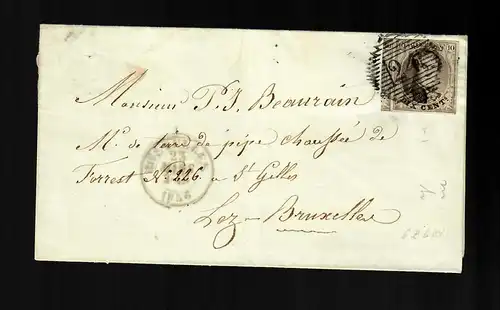 10 10
DIX CENTS
2
Monsieur P. J. Beaurain
Md. de terre de pipe chaussée de
Forrest No. 226 a St Gilles
Lez - Bruxelles